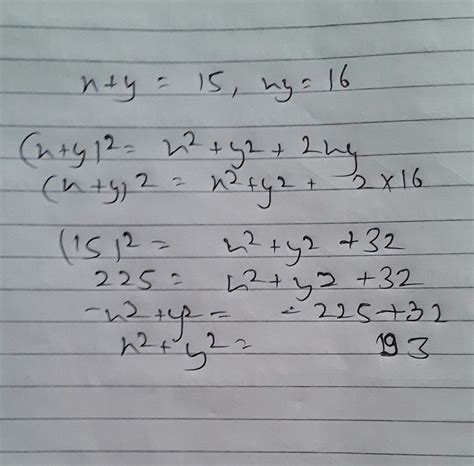 x+y = 15, xy = 16
(x+y)² = x² + y² + 2xy
(x+y)² = x²+y² + 2×16
(15)² = x²+y² +32
225 = x²+y² +32
-x²+y² = -225+32
x²+y² = 193